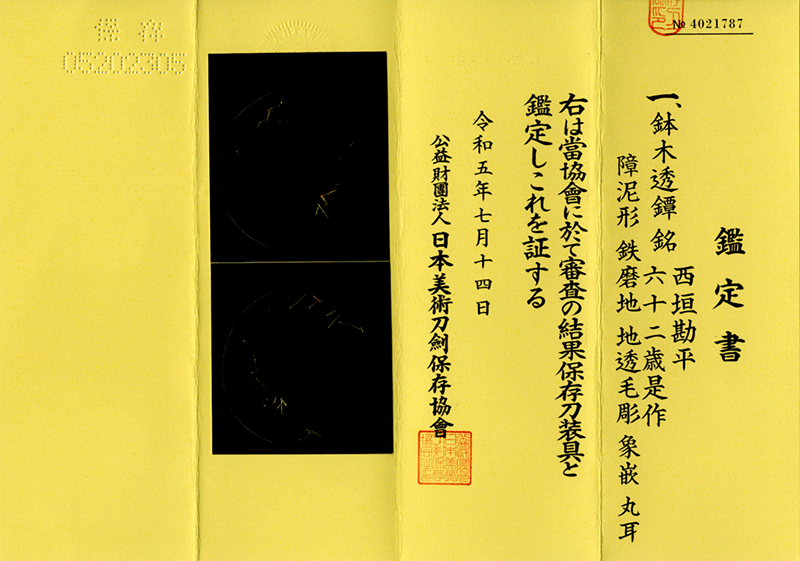 № 4021787
鑑定書
一、鉢木透鐔 銘 西垣勘平
六十二歳是作
障泥形 鉄磨地 地透毛彫 象嵌 丸耳
右は當協會に於て審査の結果保存刀装具と
鑑定しこれを証する
令和五年七月十四日
公益財團法人 日本美術刀劍保存協會
保存
05202305